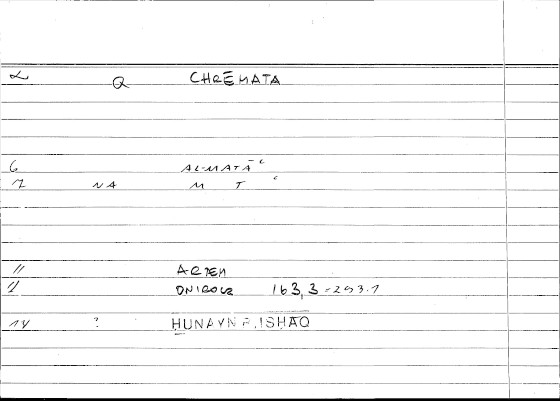 2 Q CHRĒMATA
6 AL-MATĀʿ
7 NA M T ʿ
11 ARTEM
11 ONIROCR 163,3 = 293.1
14 ? HUNAYN B. ISHAQ